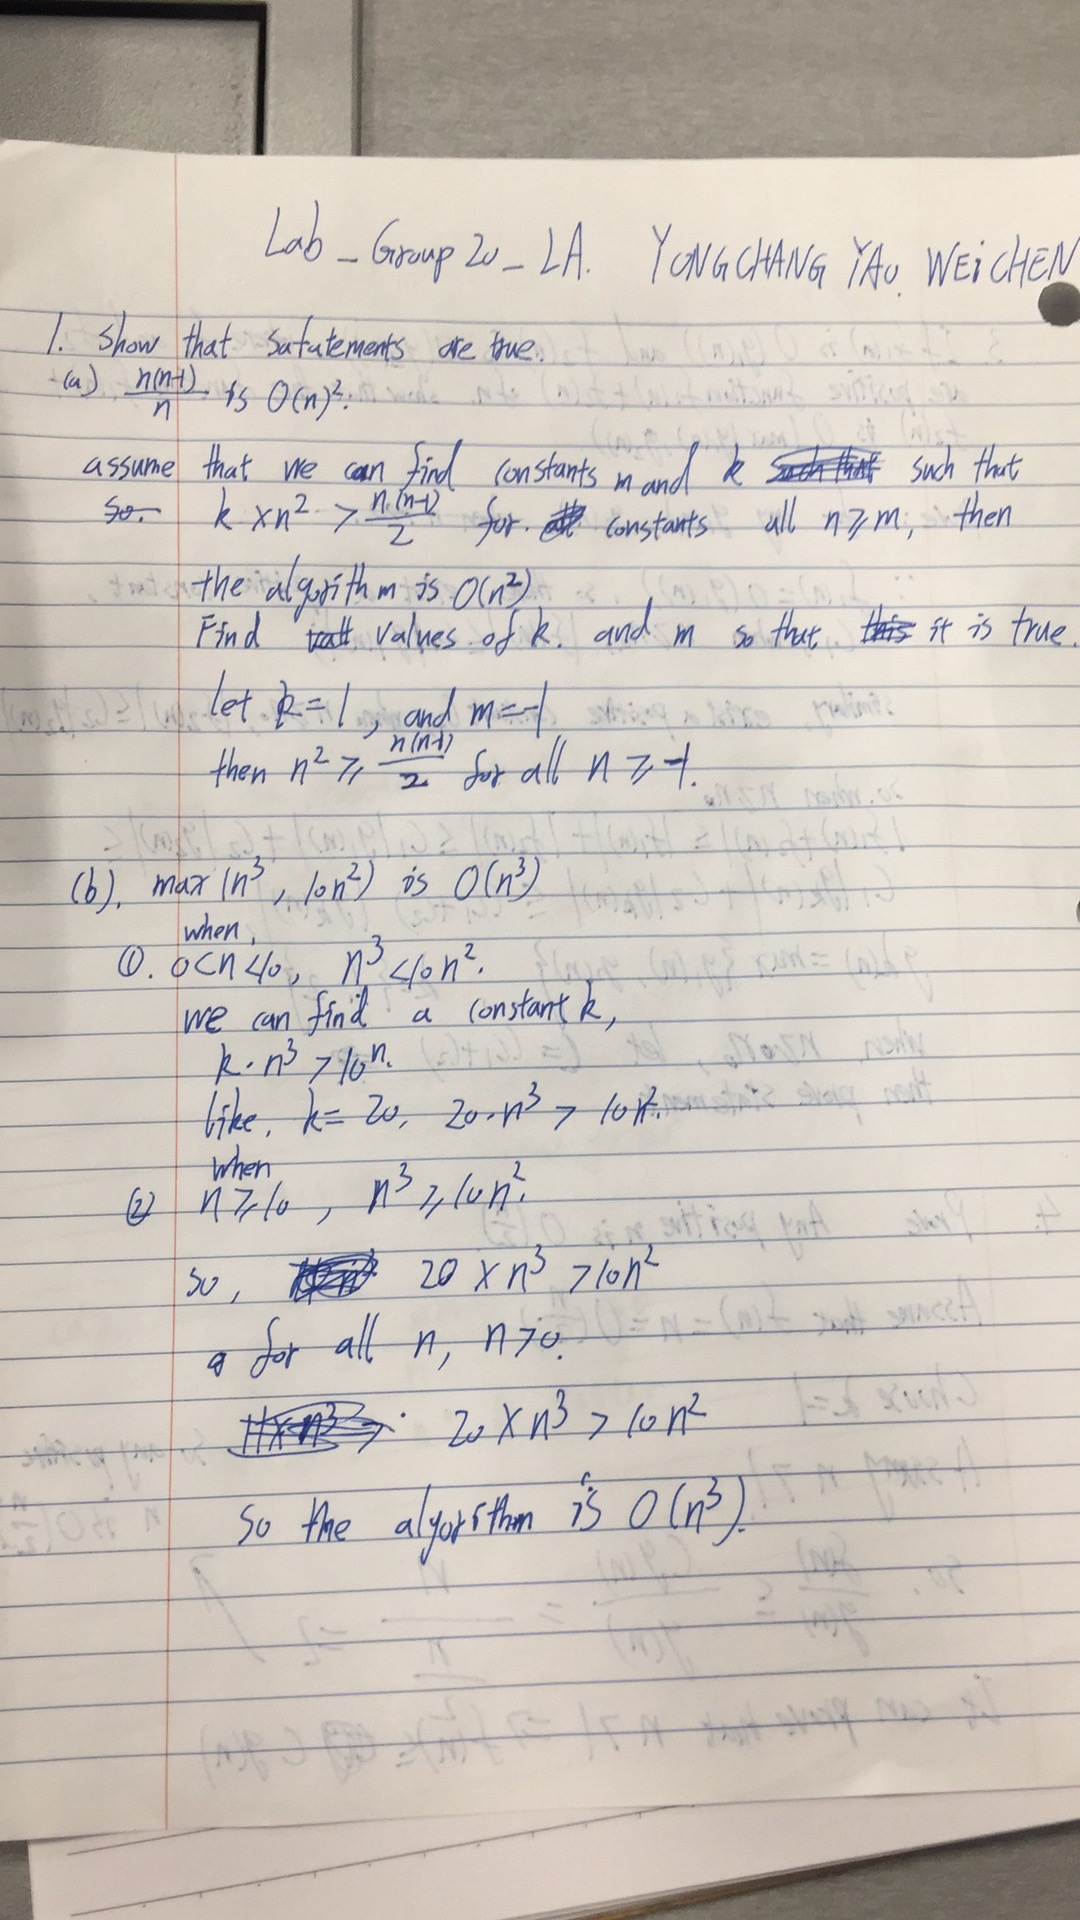 Lab - Group 20 - LA. YONGCHANG YAO. WEiCHEN
1. show that satutements are true.
(a) n(n-1)/n is O(n)².
assume that we can find constants m and k such that
k × n² > n.(n-1)/2 for constants all n ≥ m, then
the algorithm is O(n²)
Find values of k. and m so that it is true.
let k = 1, and m = -1
then n² ≥ n(n-1)/2 for all n ≥ -1.
(b). max (n³, 10n²) is O(n³)
when,
①. 0<n<10, n³ <10n².
we can find a constant k,
k · n³ > 10n.
like, k = 20, 20·n³ > 10n².
when
② n ≥ 10, n³ ≥ 10n².
so, 20 × n³ > 10n²
for all n, n>0.
20 × n³ > 10n²
So the algorithm is O(n³).